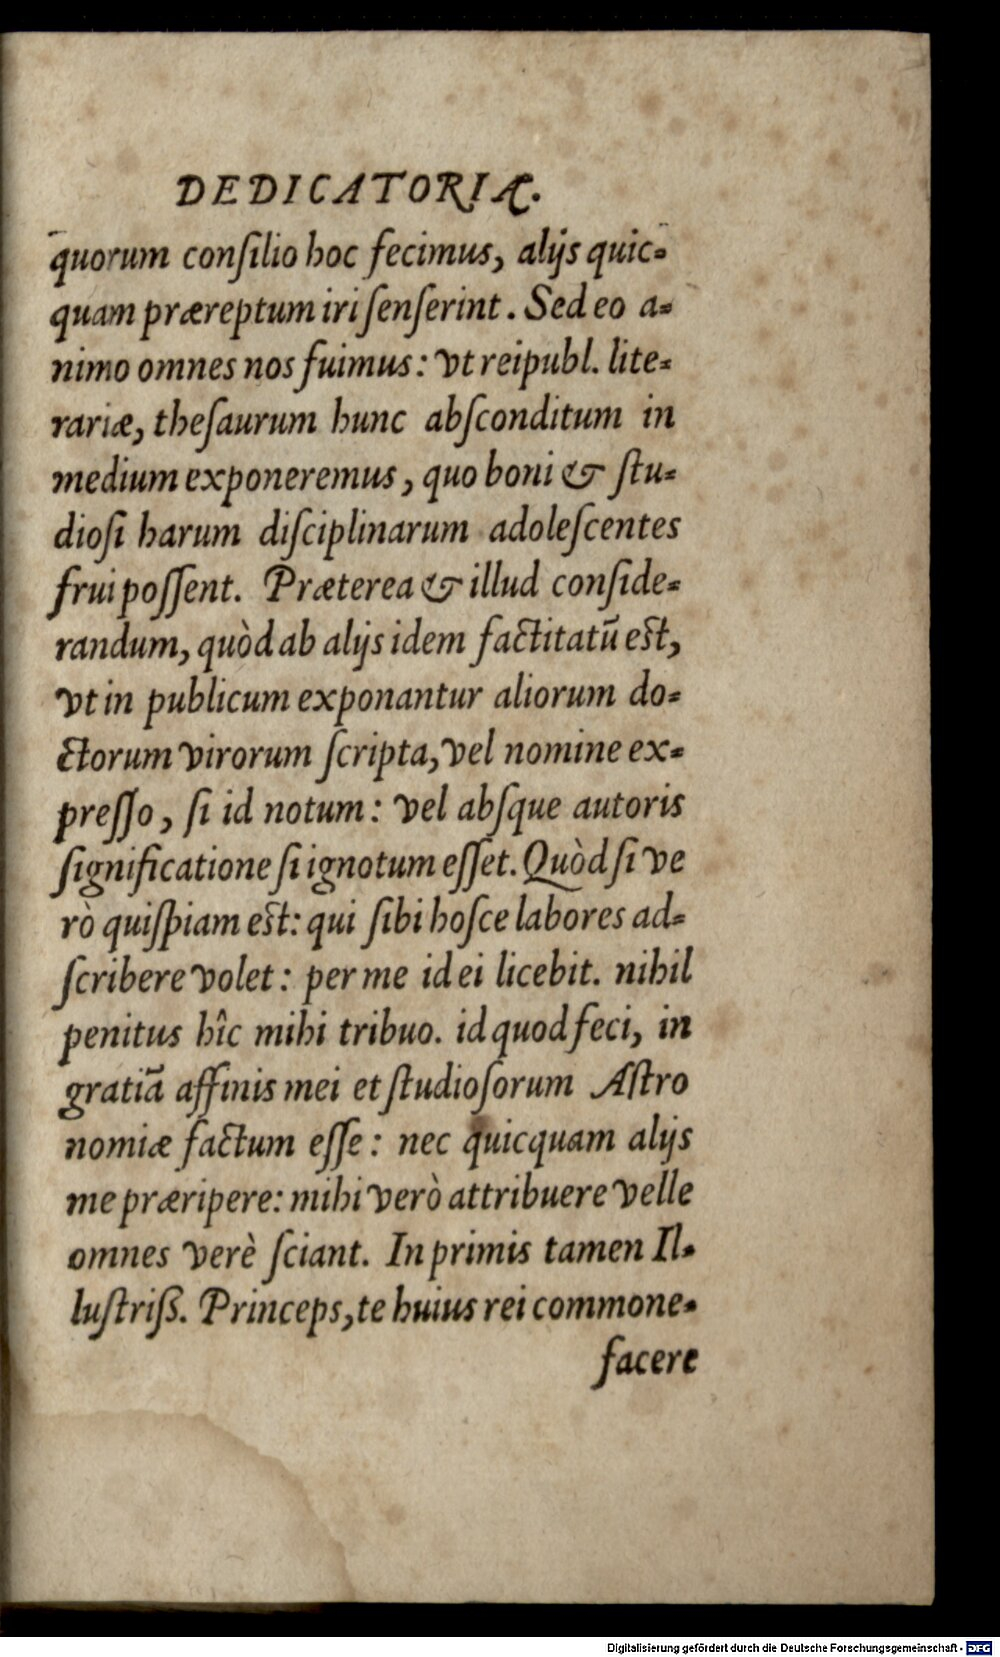 DEDICATORIÆ.
quorum conſilio hoc fecimus, alijs quic-
quam præreptum iri ſenſerint. Sed eo a-
nimo omnes nos fuimus: vt reipubl. lite-
rariæ, theſaurum hunc abſconditum in
medium exponeremus, quo boni & ſtu-
dioſi harum diſciplinarum adoleſcentes
frui poſſent. Præterea & illud conſide-
randum, quòd ab alijs idem factitatū eſt,
vt in publicum exponantur aliorum do-
ctorum virorum ſcripta, vel nomine ex-
preſſo, ſi id notum: vel abſque autoris
ſignificatione ſi ignotum eſſet. Quòd ſi ve
rò quiſpiam eſt: qui ſibi hoſce labores ad-
ſcribere volet: per me id ei licebit. nihil
penitus hîc mihi tribuo. id quod feci, in
gratiā affinis mei et ſtudioſorum Aſtro
nomiæ factum eſſe: nec quicquam alijs
me præripere: mihi verò attribuere velle
omnes verè ſciant. In primis tamen Il-
luſtriſß. Princeps, te huius rei commone-
facere
Digitalisierung gefördert durch die Deutsche Forschungsgemeinschaft - DFG